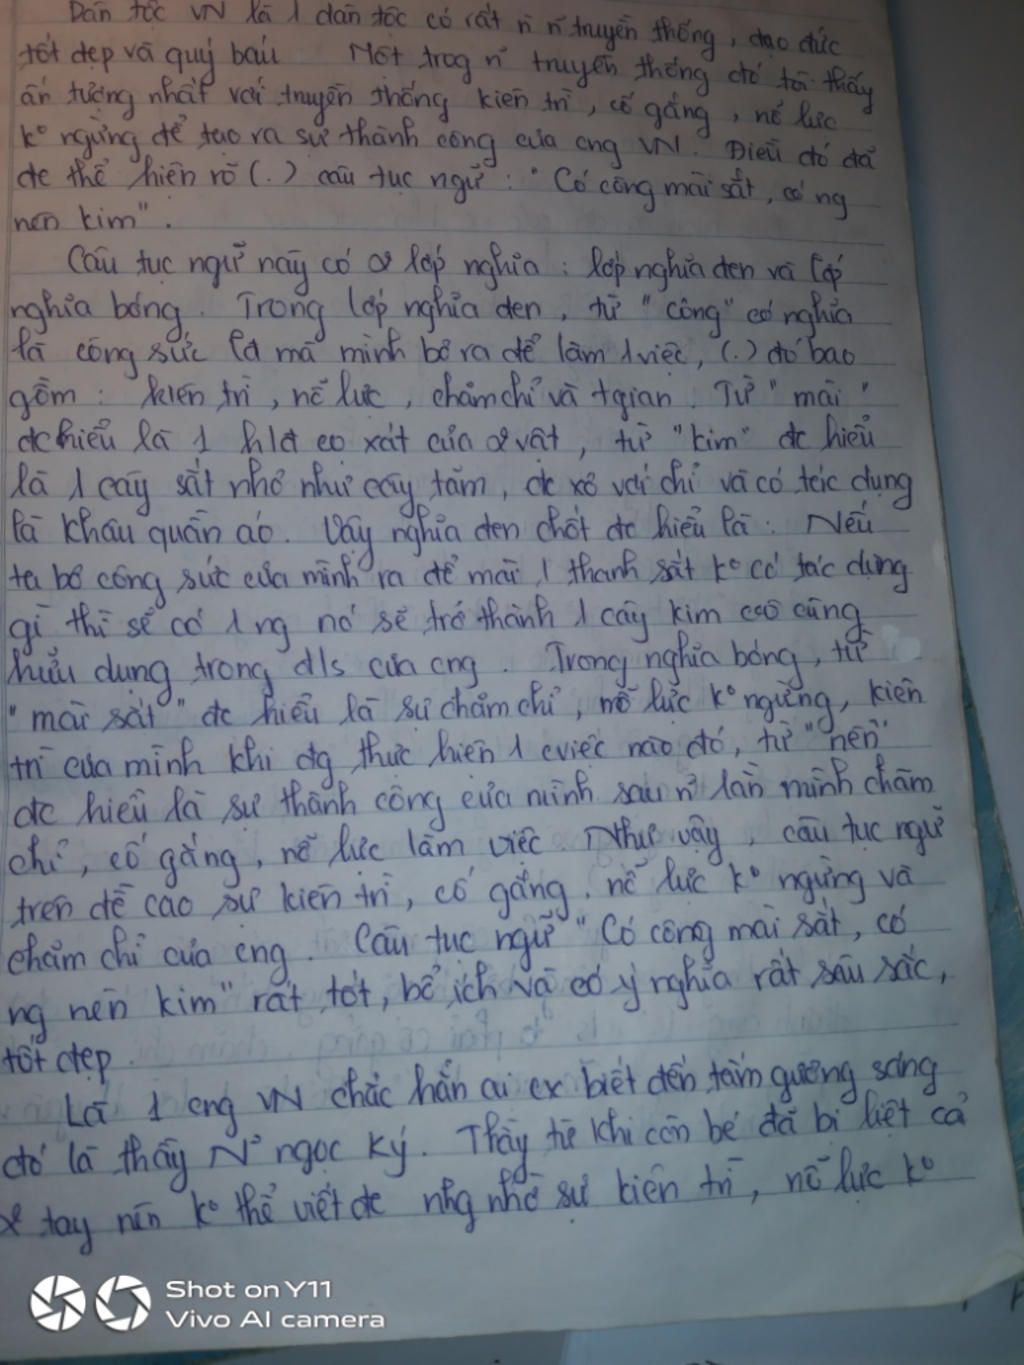 Dân tộc VN là 1 dân tộc có rất n n truyền thống, đạo đức
tốt đẹp và quý báu Một trog n~ truyền thống đó tôi thấy
ấn tượng nhất với truyền thống kiên trì, cố gắng, nỗ lực
k° ngừng để tạo ra sự thành công của cng VN. Điều đó đã
đc thể hiện rõ (.) câu tục ngữ : " Có công mài sắt, có ng
nên kim".
Câu tục ngữ này có 2 lớp nghĩa : lớp nghĩa đen và lớp
nghĩa bóng. Trong lớp nghĩa đen, từ "công" có nghĩa
là công sức là mà mình bỏ ra để làm 1 việc, (.) đó bao
gồm : kiên trì, nỗ lực, chăm chỉ và tgian. Từ " mài "
đc hiểu là 1 hđ cọ xát của 2 vật, từ "kim" đc hiểu
là 1 cây sắt nhỏ như cây tăm, đc xỏ với chỉ và có tác dụng
là khâu quần áo. Vậy nghĩa đen chốt đc hiểu là : Nếu
ta bỏ công sức của mình ra để mài 1 thanh sắt k° có tác dụng
gì thì sẽ có 1 ng nó sẽ trở thành 1 cây kim vô cùng
hữu dụng trong đ/s của cng. Trong nghĩa bóng, từ
" mài sắt " đc hiểu là sự chăm chỉ, nỗ lực k° ngừng, kiên
trì của mình khi đg thực hiện 1 cviệc nào đó, từ "nên"
đc hiểu là sự thành công của mình sau n` lần mình chăm
chỉ, cố gắng, nỗ lực làm việc. Như vậy, câu tục ngữ
trên đề cao sự kiên trì, cố gắng, nỗ lực k° ngừng và
chăm chỉ của cng. Câu tục ngữ "Có công mài sắt, có
ng nên kim" rất tốt, bổ ích và có ý nghĩa rất sâu sắc,
tốt đẹp.
Là 1 cng VN chắc hẳn ai cx biết đến tấm gương sáng
đó là thầy N~ ngọc Ký. Thầy từ khi còn bé đã bị liệt cả
2 tay nên k° thể viết đc nhg nhờ sự kiên trì, nỗ lực k°
Shot on Y11
Vivo AI camera